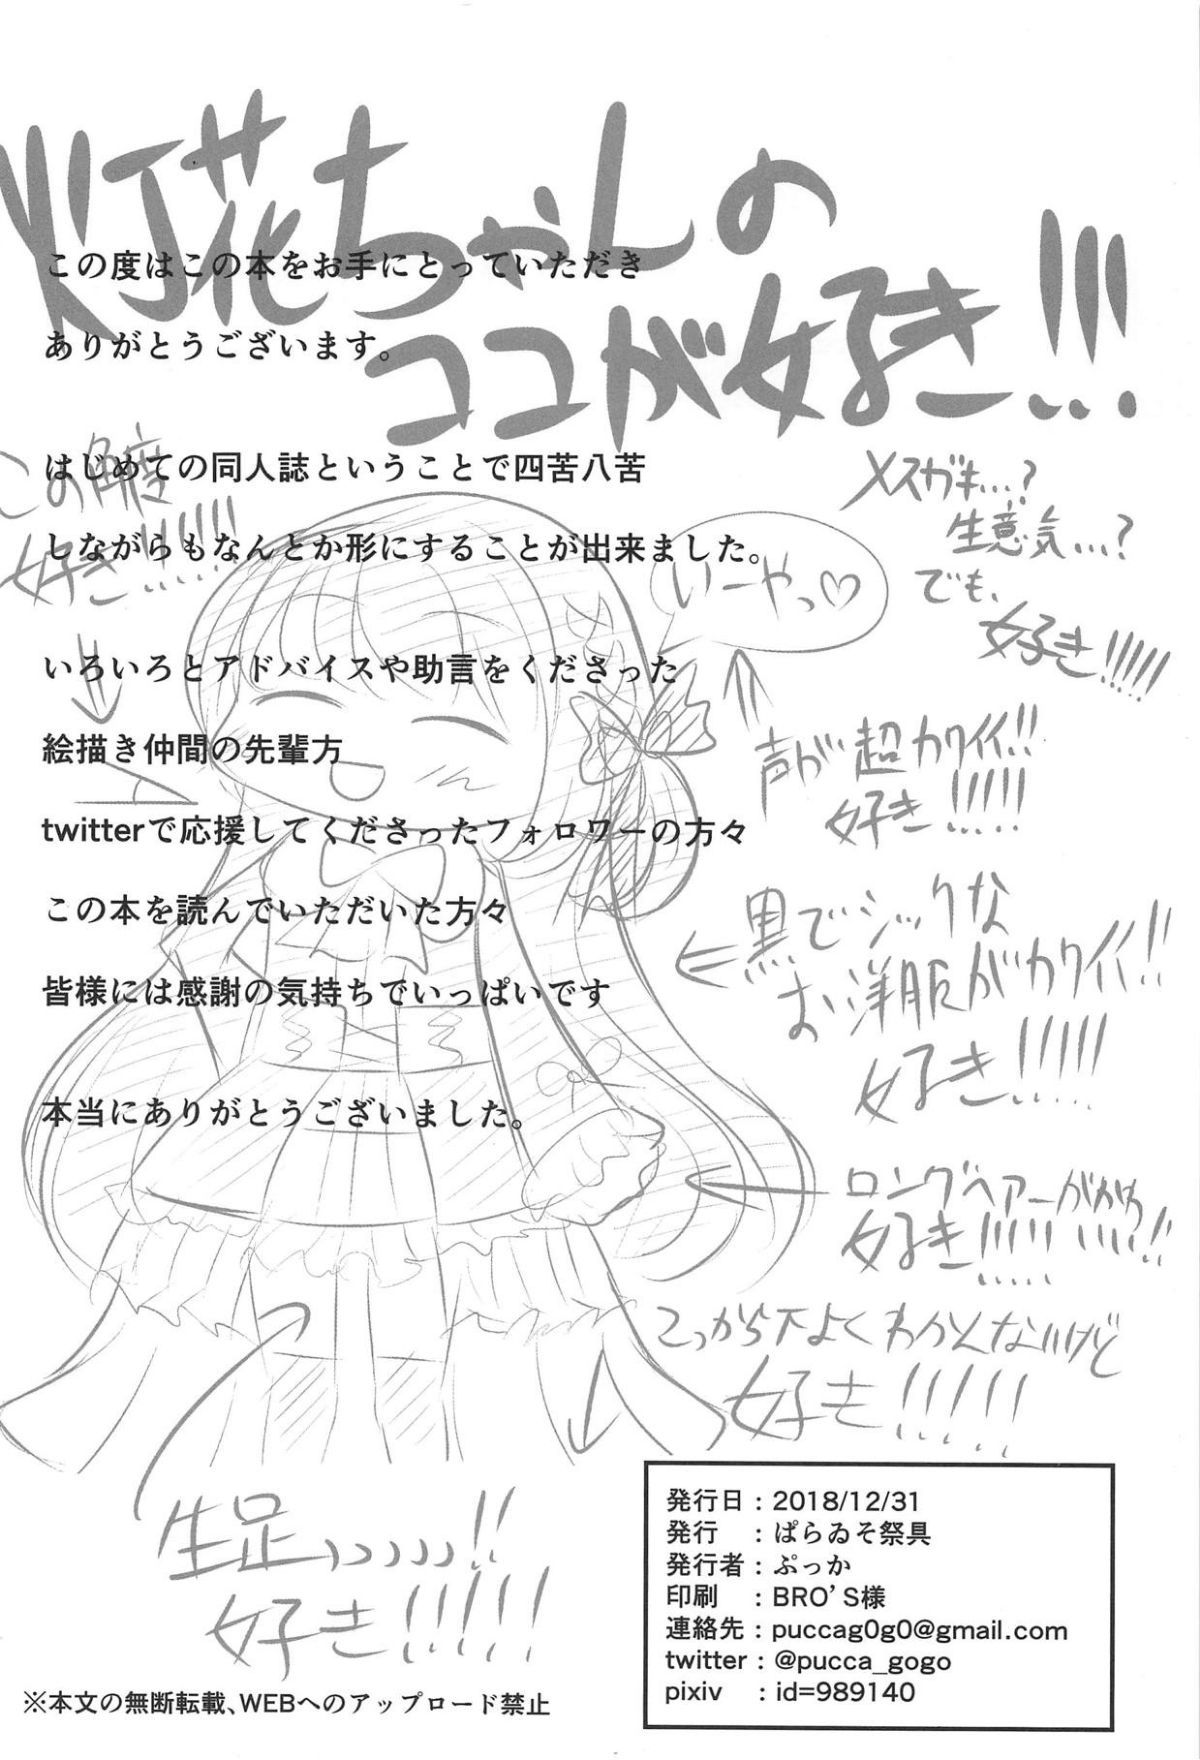 灯花ちゃんの
ココが好き!!!
この度はこの本をお手にとっていただき
ありがとうございます。
はじめての同人誌ということで四苦八苦
しながらもなんとか形にすることが出来ました。
いろいろとアドバイスや助言をくださった
絵描き仲間の先輩方
twitterで応援してくださったフォロワーの方々
この本を読んでいただいた方々
皆様には感謝の気持ちでいっぱいです
本当にありがとうございました。
この角度
好き!!!!!!
いーやっ♡
メスガキ...?
生意気...?
でも、
好き!!!!!
声が超カワイイ!!
好き!!!!!
黒でシックな
お洋服がカワイイ!!
好き!!!!!
ロングヘアーがかわ
好き!!!!!
こっから下よくわかんないけど
好き!!!!!
生足!!
好き!!!!!
発行日：2018/12/31
発行　：ぱらゐそ祭具
発行者：ぷっか
印刷　：BRO'S様
連絡先：puccag0g0@gmail.com
twitter：@pucca_gogo
pixiv　：id=989140
※本文の無断転載、WEBへのアップロード禁止